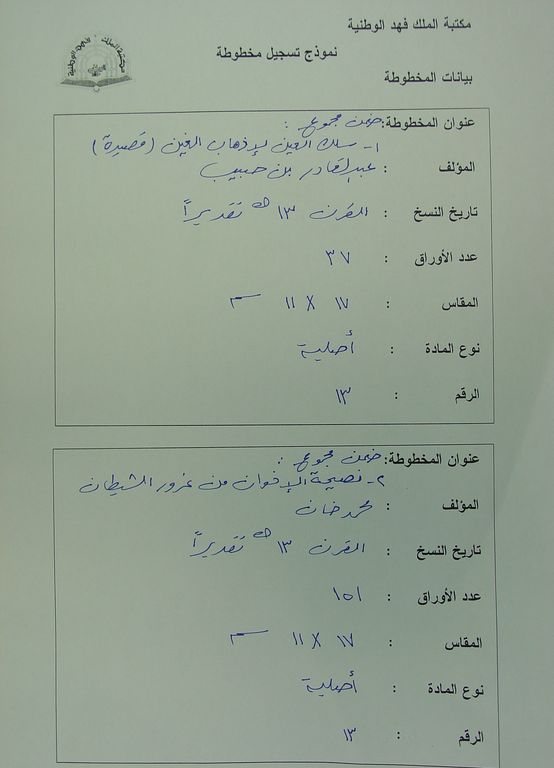 مكتبة الملك فهد الوطنية
نموذج تسجيل مخطوطة
بيانات المخطوطة
مكتبة الملك فهد الوطنية
عنوان المخطوطة: ضمن مجموع :
١- سلك العين لإذهاب الغين (قصيدة)
المؤلف : عبدالقادر بن حبيب
تاريخ النسخ : القرن ١٣ هـ تقديراً
عدد الأوراق : ٣٧
المقاس : ١٧ X ١١ سم
نوع المادة : أصلية
الرقم : ١٣
عنوان المخطوطة: ضمن مجموع :
٢- نصيحة الإخوان من غرور الشيطان
المؤلف : محمد خان
تاريخ النسخ : القرن ١٣ هـ تقديراً
عدد الأوراق : ١٥١
المقاس : ١٧ X ١١ سم
نوع المادة : أصلية
الرقم : ١٣